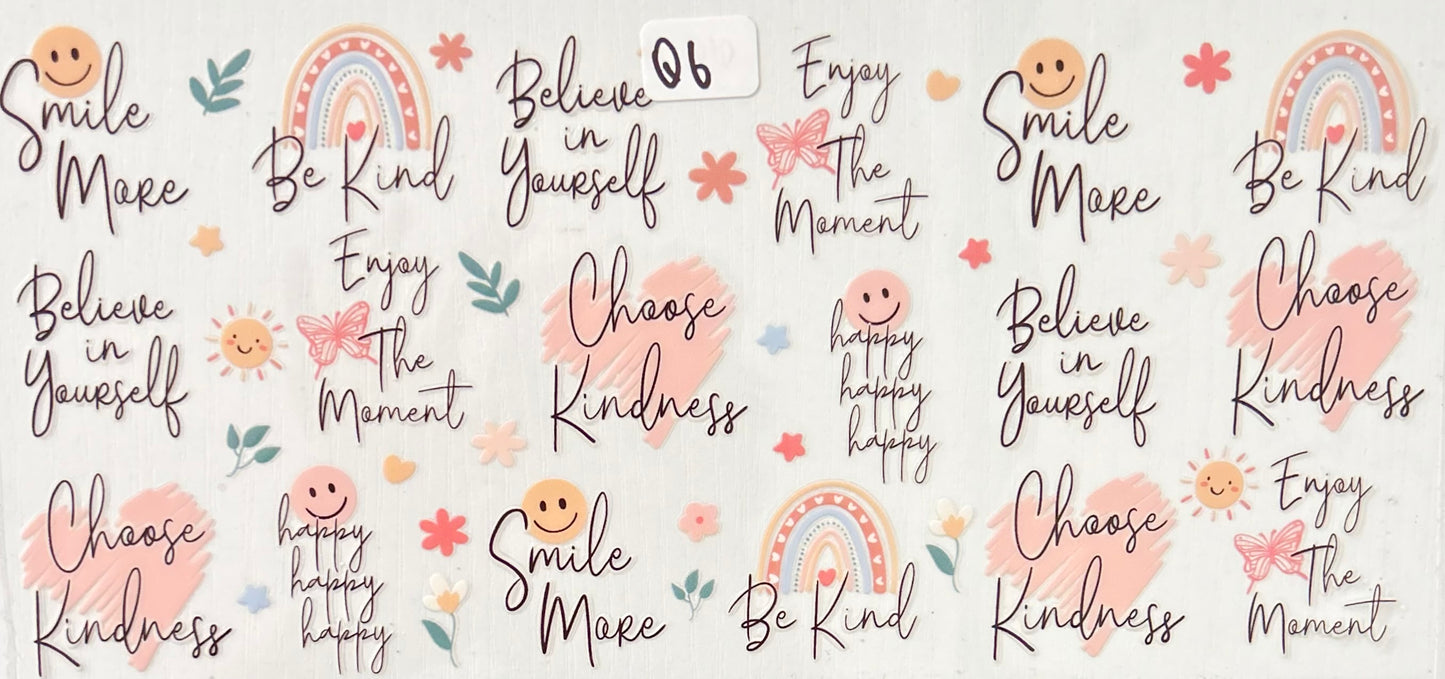 Smile
More
Be Kind
Believe
in
Yourself
Q6
Enjoy
The
Moment
Smile
More
Be Kind
Believe
in
Yourself
Enjoy
The
Moment
Choose
Kindness
happy
happy
happy
Believe
in
Yourself
Choose
Kindness
Choose
Kindness
happy
happy
happy
Smile
More
Be Kind
Choose
Kindness
Enjoy
The
Moment